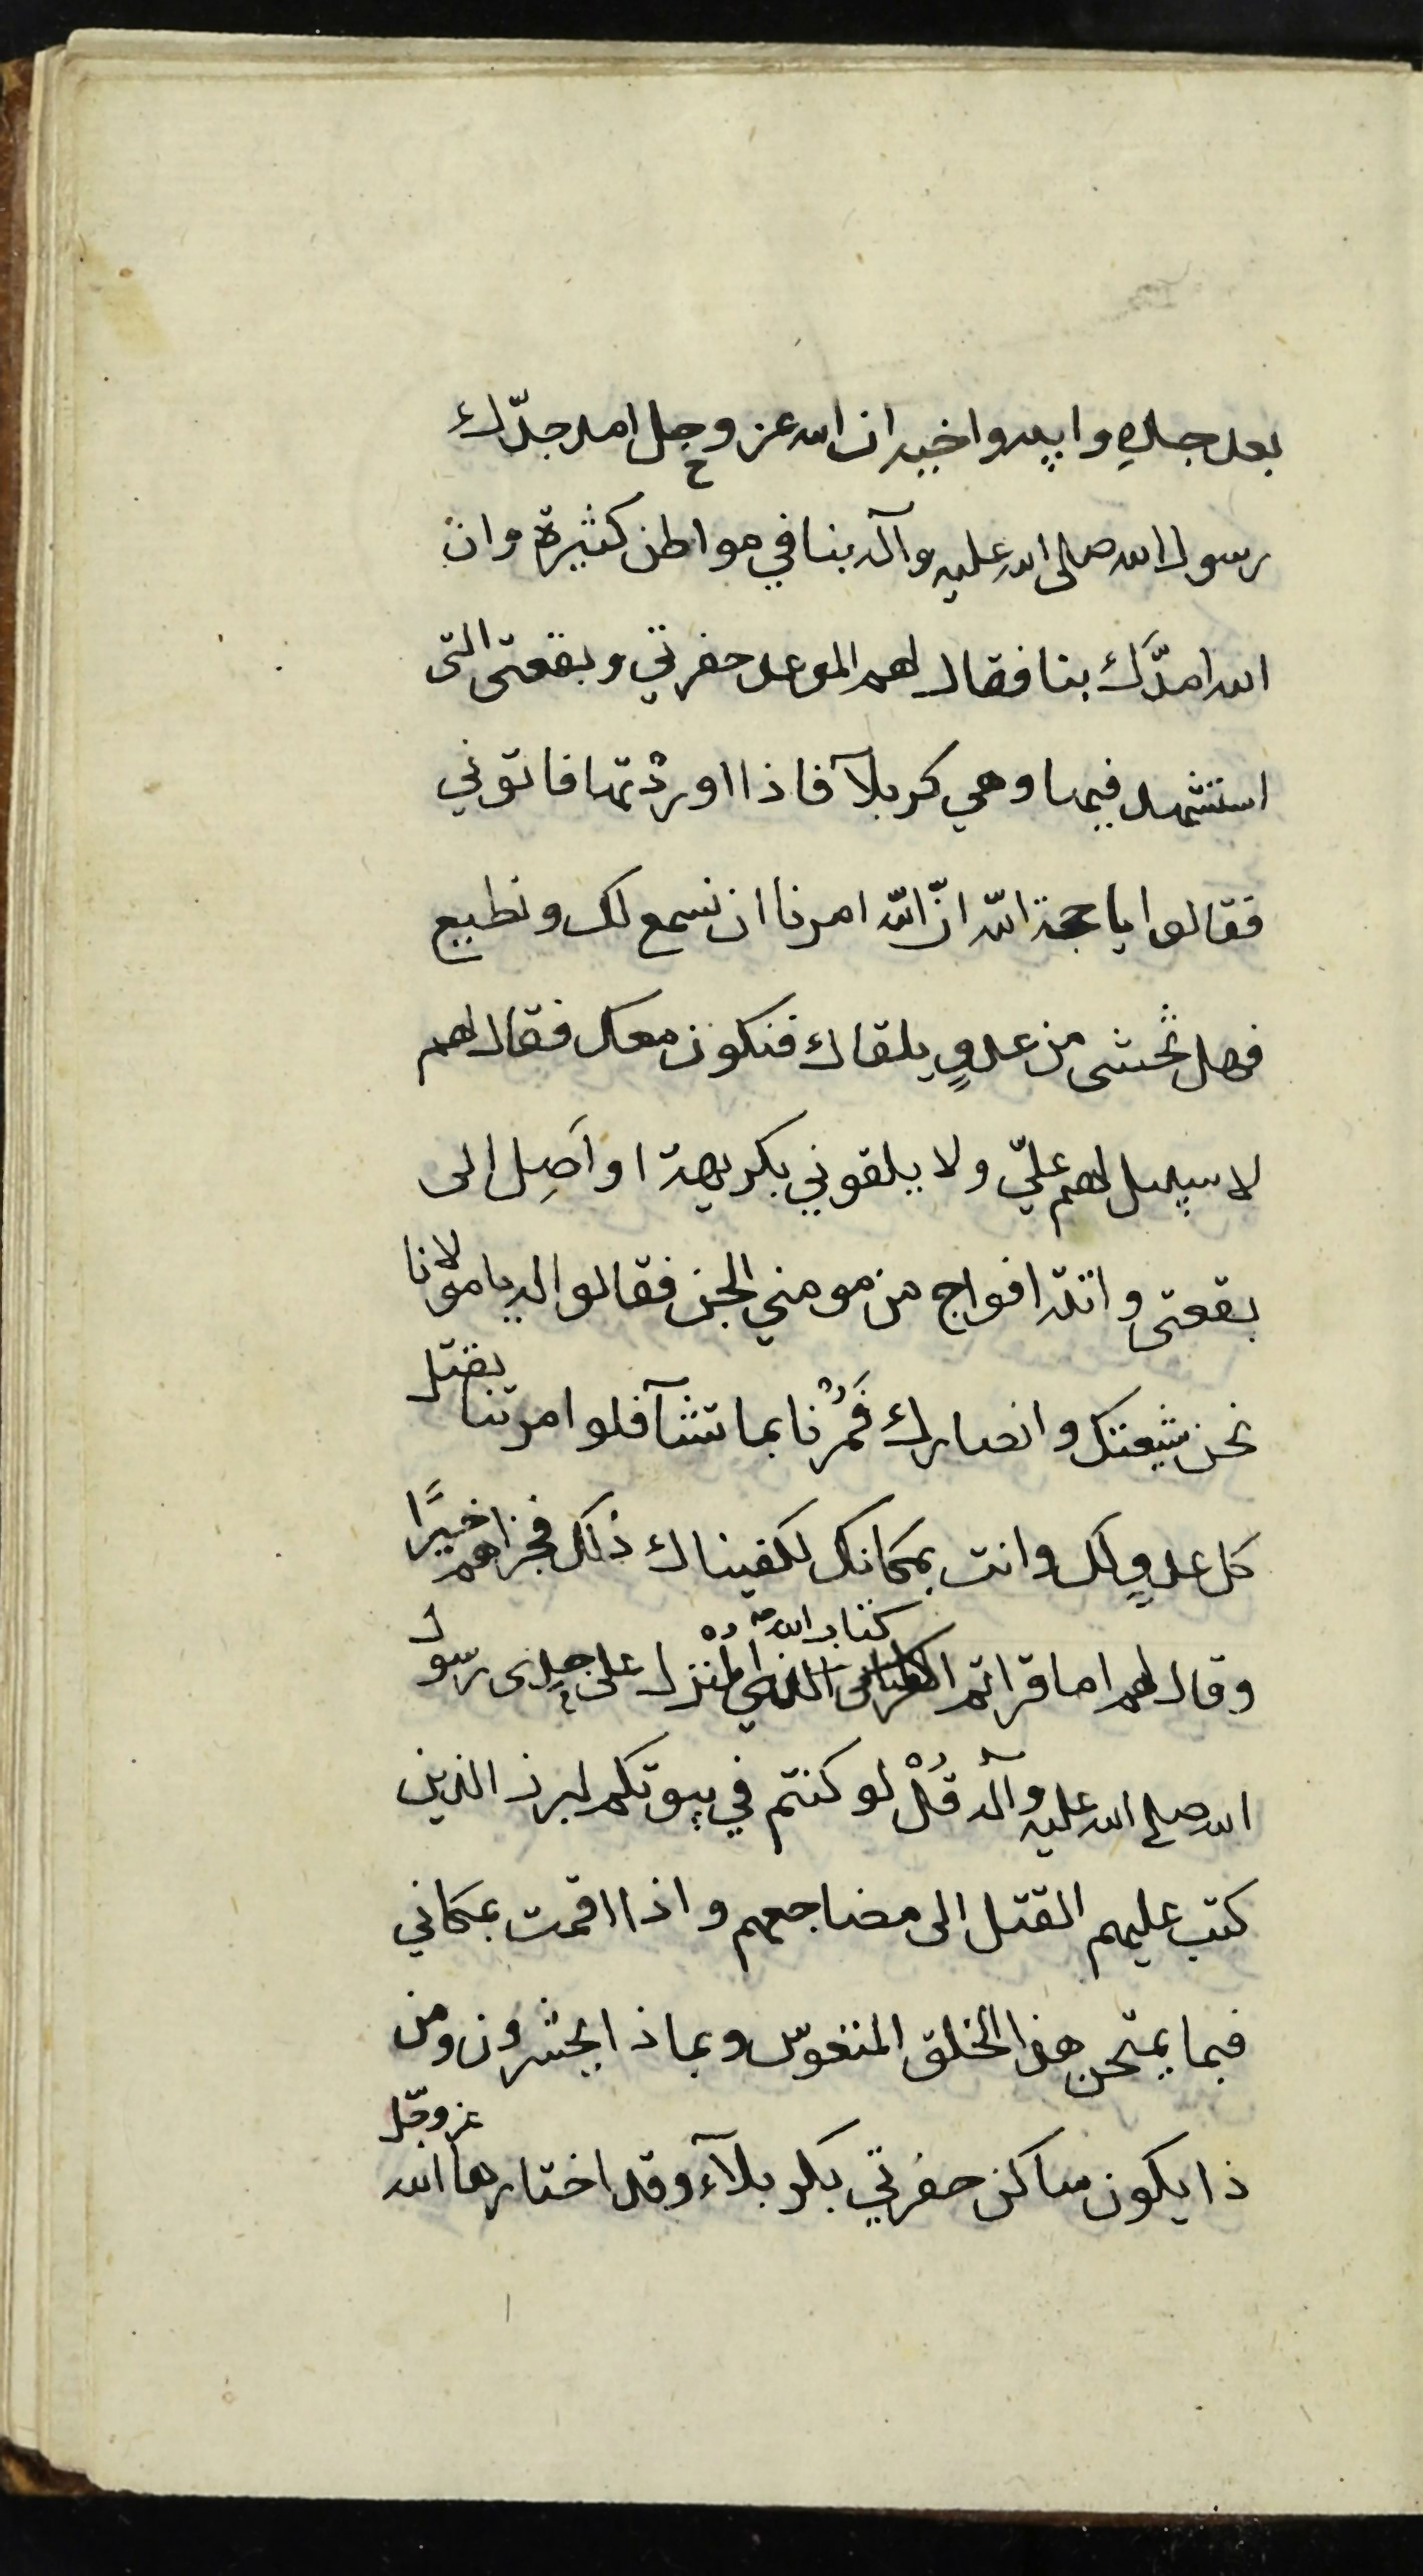 بعد جده وابيه واخيه ان الله عز وجل امد جدّك
رسول الله صلى الله عليه وآله بنا في مواطن كثيرة وان
الله امدّك بنا فقال لهم الموعد حفرتي وبقعتى التى
استشهد فيها وهي كربلآ فاذا اوردْتها فاتوني
فقالوا يا حجة الله انّ الله امرنا ان نسمع لك ونطيع
فهل تخشى من عدوٍ يلقاك فنكون معك فقال لهم
لا سبيل لهم عليّ ولا يلقوني بكريهة او اَصِل الى
بقعتى واتته افواج من مومني الجن فقالوا له يا مولانا
نحن شيعتك وانصارك فَمُرْنا بما تشآ فلو امرتنا بقتل
كل عدوٍ لك وانت بمكانك لكفيناك ذلك فجزاهم خيرًا
وقال لهم اما قراتم كتاب الله المنزل على جدى رسول
الله صلى الله عليه وآله قُلْ لو كنتم في بيوتكم لبرز الذين
كتب عليهم القتل الى مضاجعهم واذا اقمت بمكاني
فبما يمتحن هذا الخلق المتعوس وبماذا يختبرون ومن
ذا يكون ساكن حفرتي بكربلآء وقد اختارها الله عز وجّل